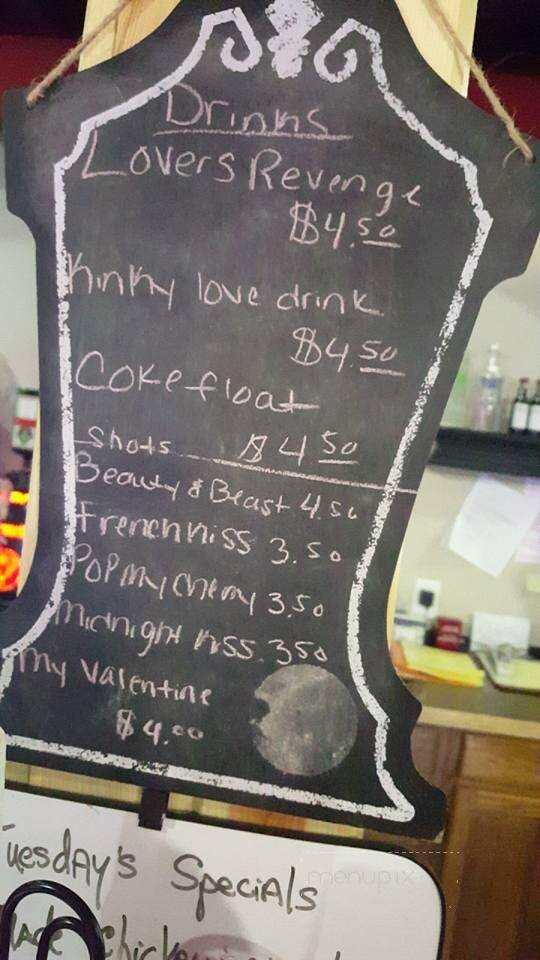 Drinks
Lovers Revenge
$4.50
Kinky love drink
$4.50
Coke float
Shots $4 50
Beauty & Beast 4.50
French kiss 3.50
Pop my cherry 3.50
Midnight kiss. 350
My Valentine
$4.00
Tuesday's Specials
menupix
Chicken